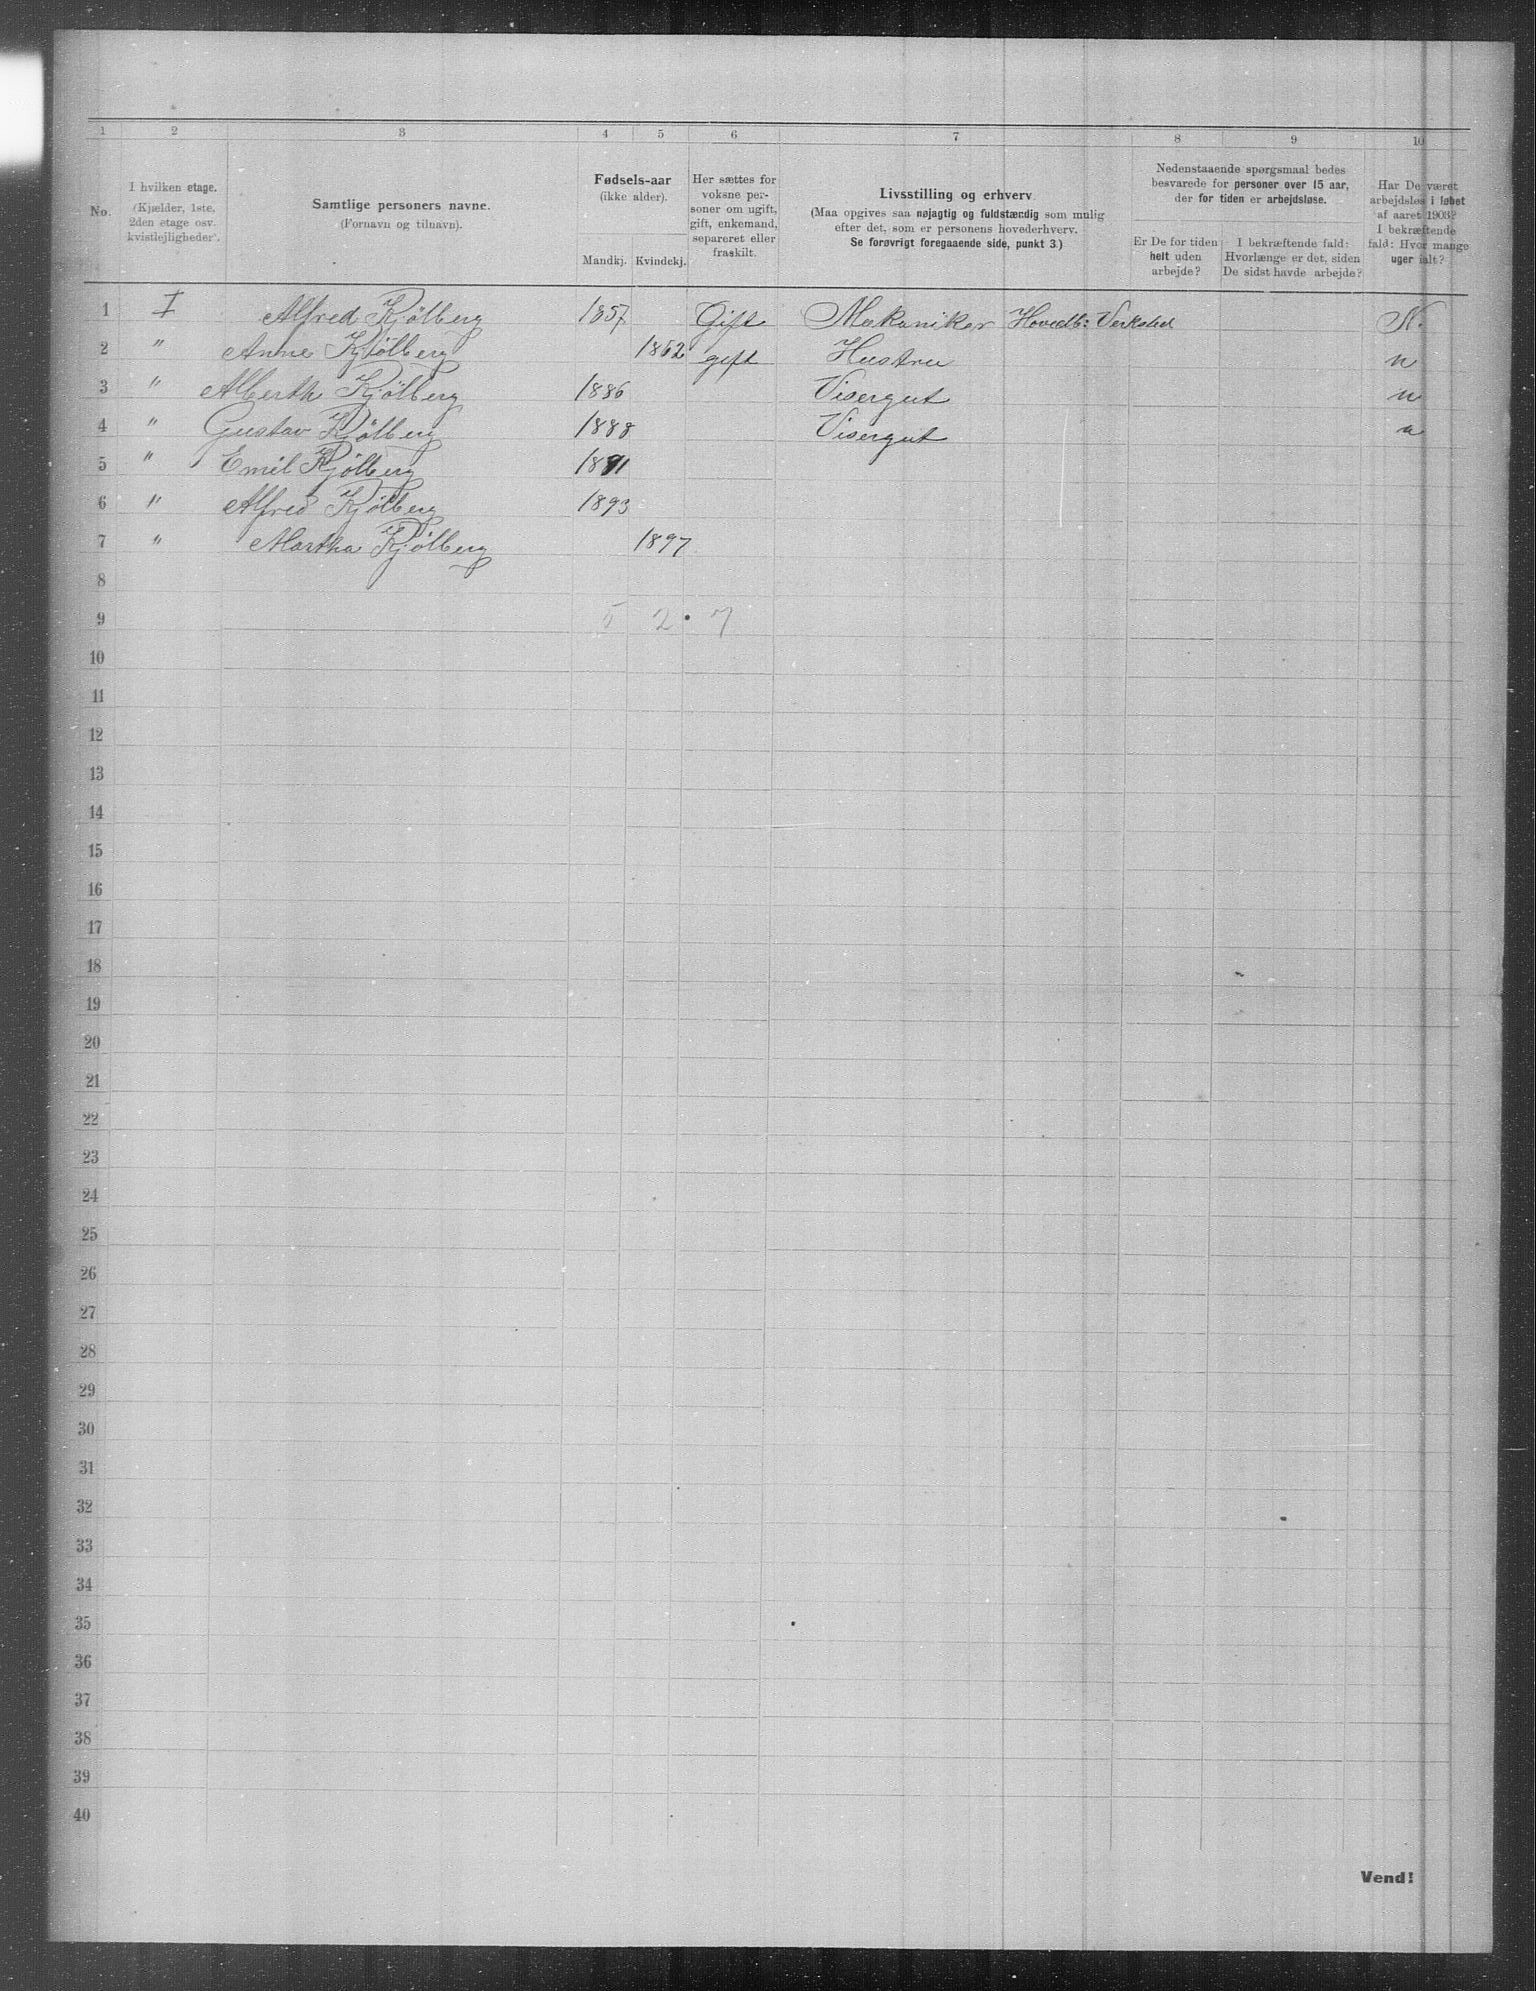 1 2 3 4 5 6 7 8 9 10
No.
I hvilken etage.
(Kjælder, 1ste,
2den etage osv.
kvistlejligheder).
Samtlige personers navne.
(Fornavn og tilnavn).
Fødsels-aar
(ikke alder).
Mandkj. Kvindekj.
Her sættes for
voksne per-
soner om ugift,
gift, enkemand,
separeret eller
fraskilt.
Livsstilling og erhverv
(Maa opgives saa nøjagtig og fuldstændig som mulig
efter det, som er personens hovederhverv.
Se forøvrigt foregaaende side, punkt 3.)
Nedenstaaende spørgsmaal bedes
besvarede for personer over 15 aar,
der for tiden er arbejdsløse.
Er De for tiden
helt uden
arbejde?
I bekræftende fald:
Hvorlænge er det, siden
De sidst havde arbejde?
Har De været
arbejdsløs i løbet
af aaret 1903?
I bekræftende
fald: Hvor mange
uger ialt?
1 I Alfred Kjölberg 1857 Gift Mekaniker Hovedb: Verksted N.
2 " Anne Kjölberg 1862 gift Hustru n
3 " Alberth Kjölberg 1886 Visergut n
4 " Gustav Kjölberg 1888 Visergut n
5 " Emil Kjölberg 1891
6 " Alfred Kjölberg 1893
7 " Martha Kjölberg 1897
8
9 5 2 • 7
10
11
12
13
14
15
16
17
18
19
20
21
22
23
24
25
26
27
28
29
30
31
32
33
34
35
36
37
38
39
40
Vend!